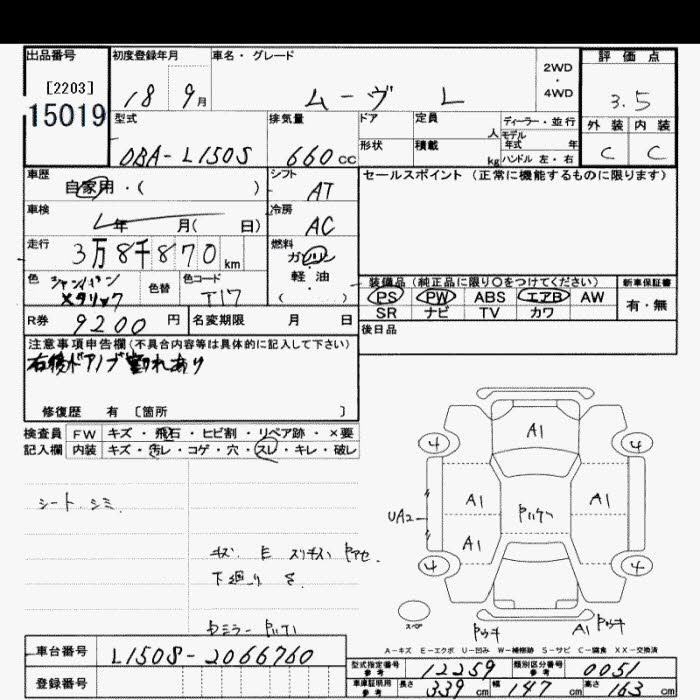 出品番号 初度登録年月 車名・グレード 2WD・4WD 評価点
[2203]
15019
18 9月 ムーヴ L 3.5
型式 排気量 ドア 定員 人 ディーラー・並行 外装 内装
OBA-L150S 660cc 形状 積載 kg モデル年式 年 ハンドル 左・右 C C
車歴 自家用・( ) シフト AT セールスポイント(正常に機能するものに限ります)
車検 年 月( 日) 冷房 AC
走行 3万8千870km 燃料 ガソリン
軽・油
( )
色 シャンパンメタリック 色替 色コード T17
装備品(純正品に限り○をつけてください) 新車保証書
PS PW ABS エアB AW 有・無
SR ナビ TV カワ
R券 9200円 名変期限 月 日 後日品
注意事項申告欄(不具合内容等は具体的に記入して下さい)
右後ドアノブ割れあり
修復歴 有 〔箇所 〕
検査員 FW キズ・飛石・ヒビ割・リペア跡・×要
記入欄 内装 キズ・汚レ・コゲ・穴・スレ・キレ・破レ
シート シミ
下廻り
4 A1 4
UA2 A1 A1
A1
4 4
スペア
A1
A-キズ E-エクボ U-凹み W-補修跡 S-サビ C-腐食 XX-交換済
車台番号 L150S-2066760
登録番号
型式指定番号 参考 12259 類別区分番号 参考 0051
車庫証明用 参考 長さ 339cm 幅 147cm 高さ 163cm